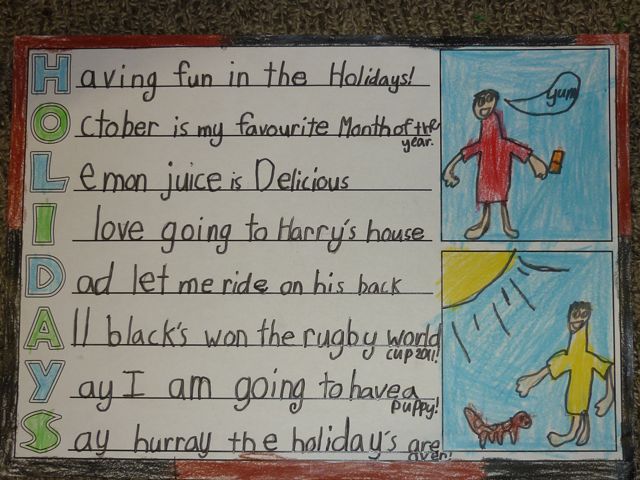 Having fun in the Holidays!
yum
October is my favourite Month of the
year.
Lemon juice is Delicious
I love going to Harry's house
Dad let me ride on his back
All black's won the rugby world
cup 2011!
Yay I am going to have a
puppy!
Say hurray the holiday's are
over!